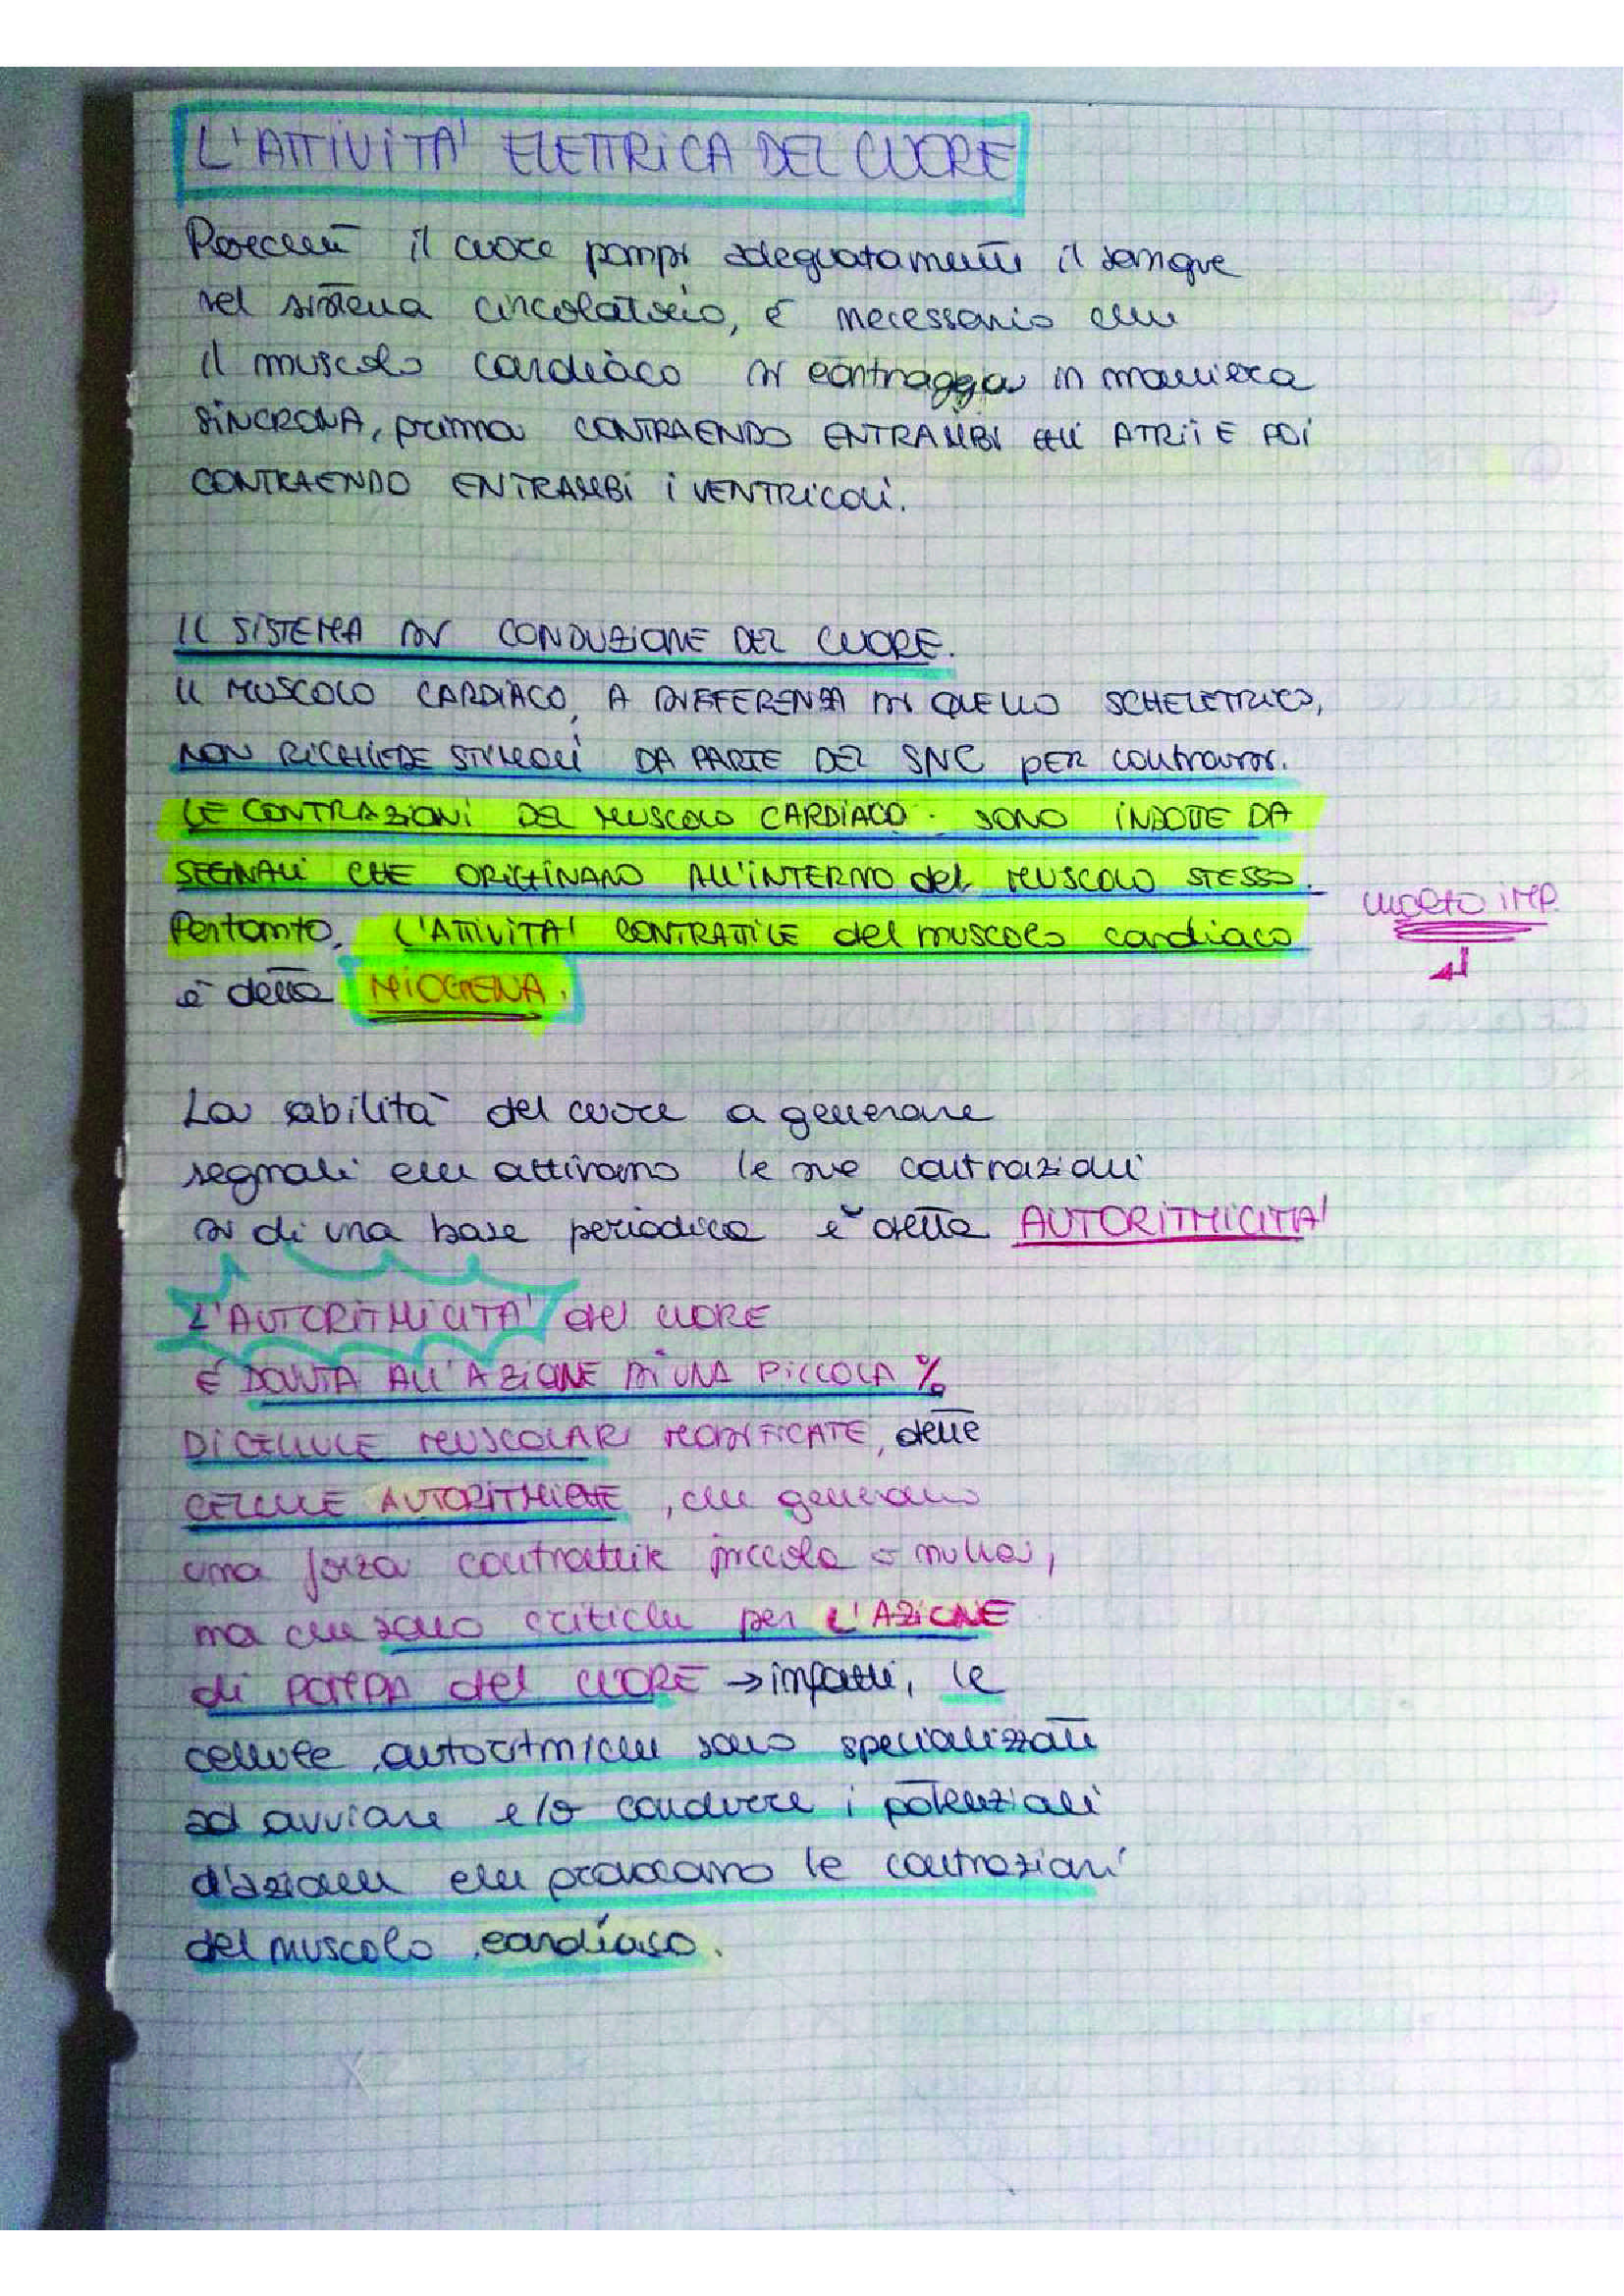 L'ATTIVITA' ELETTRICA DEL CUORE
Perché il cuore pompi adeguatamente il sangue
nel sistema circolatorio, é necessario che
il muscolo cardiaco si contragga in maniera
SINCRONA, prima CONTRAENDO ENTRAMBI GLI ATRII E POI
CONTRAENDO ENTRAMBI I VENTRICOLI.
IL SISTEMA DI CONDUZIONE DEL CUORE.
IL MUSCOLO CARDIACO, A DIFFERENZA DI QUELLO SCHELETRICO,
NON RICHIEDE STIMOLI DA PARTE DEL SNC PER contrarsi.
LE CONTRAZIONI DEL MUSCOLO CARDIACO SONO INDOTTE DA
SEGNALI CHE ORIGINANO ALL'INTERNO del MUSCOLO STESSO.
Pertanto, L'ATTIVITA' CONTRATTILE del muscolo cardiaco
MOLTO IMP.
è detta MIOGENA.
La abilità del cuore a generare
segnali che attivano le sue contrazioni
su di una base periodica è detta AUTORITMICITA'
L'AUTORITMICITA' del CUORE
É DOVUTA ALL'AZIONE DI UNA PICCOLA %
DI CELLULE MUSCOLARI MODIFICATE, dette
CELLULE AUTORITMICHE, che generano
una forza contrattile piccola o nulla,
ma che sono critiche per L'AZIONE
di POMPA del CUORE → infatti, le
cellule autoritmiche sono specializzate
ad avviare e/o condurre i potenziali
d'azione che provocano le contrazioni
del muscolo cardiaco.